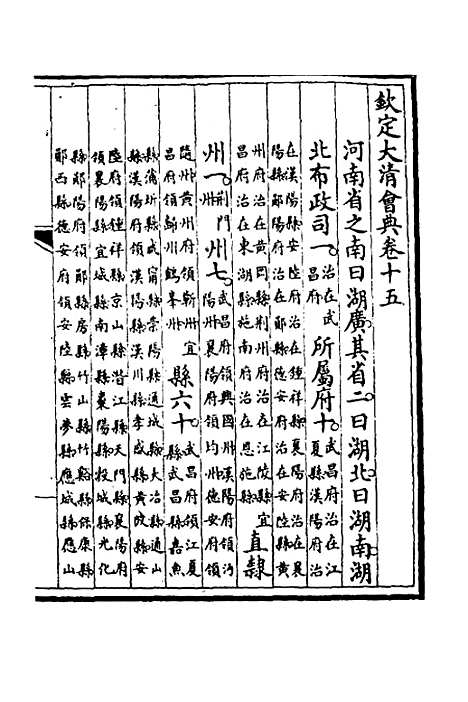 欽定大清會典卷十五
河南省之南曰湖廣其省二曰湖北曰湖南湖
北布政司一治在武昌府所屬府十武昌府治在江夏縣漢陽府治
在漢陽縣安陸府治在鍾祥縣襄陽府治在襄
陽縣鄖陽府治在鄖縣德安府治在安陸縣黃
州府治在黃岡縣荊州府治在江陵縣宜昌府治在東湖縣施南府治在恩施縣直隸
州一荊門州七武昌府領興國州漢陽府領沔陽州襄陽府領均州德安府領
隨州黃州府領蘄州宜昌府領歸州鶴峯州縣六十武昌府領江夏縣武昌縣嘉魚
縣蒲圻縣咸寧縣崇陽縣通城縣大冶縣通山
縣漢陽府領漢陽縣漢川縣孝感縣黃陂縣安
陸府領鍾祥縣京山縣潛江縣天門縣襄陽府
領襄陽縣宜城縣南漳縣棗陽縣穀城縣光化
縣鄖陽府領鄖縣房縣竹山縣竹谿縣保康縣
鄖西縣德安府領安陸縣雲夢縣應城縣應山